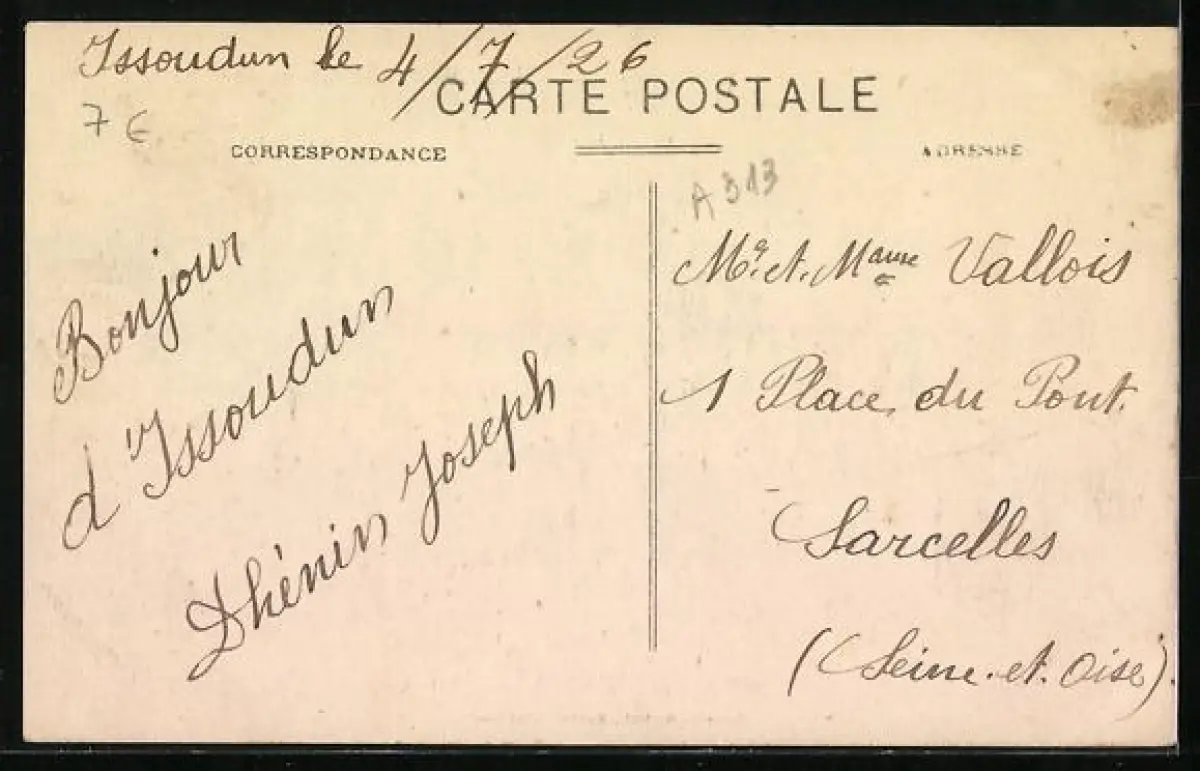 Issoudun le 4/7/26
CARTE POSTALE
7 €
CORRESPONDANCE
ADRESSE
A 313
Bonjour
d'Issoudun
Dhénin Joseph
Mr. et. Mame Vallois
1 Place du Pont.
Sarcelles
(Seine. et. Oise).